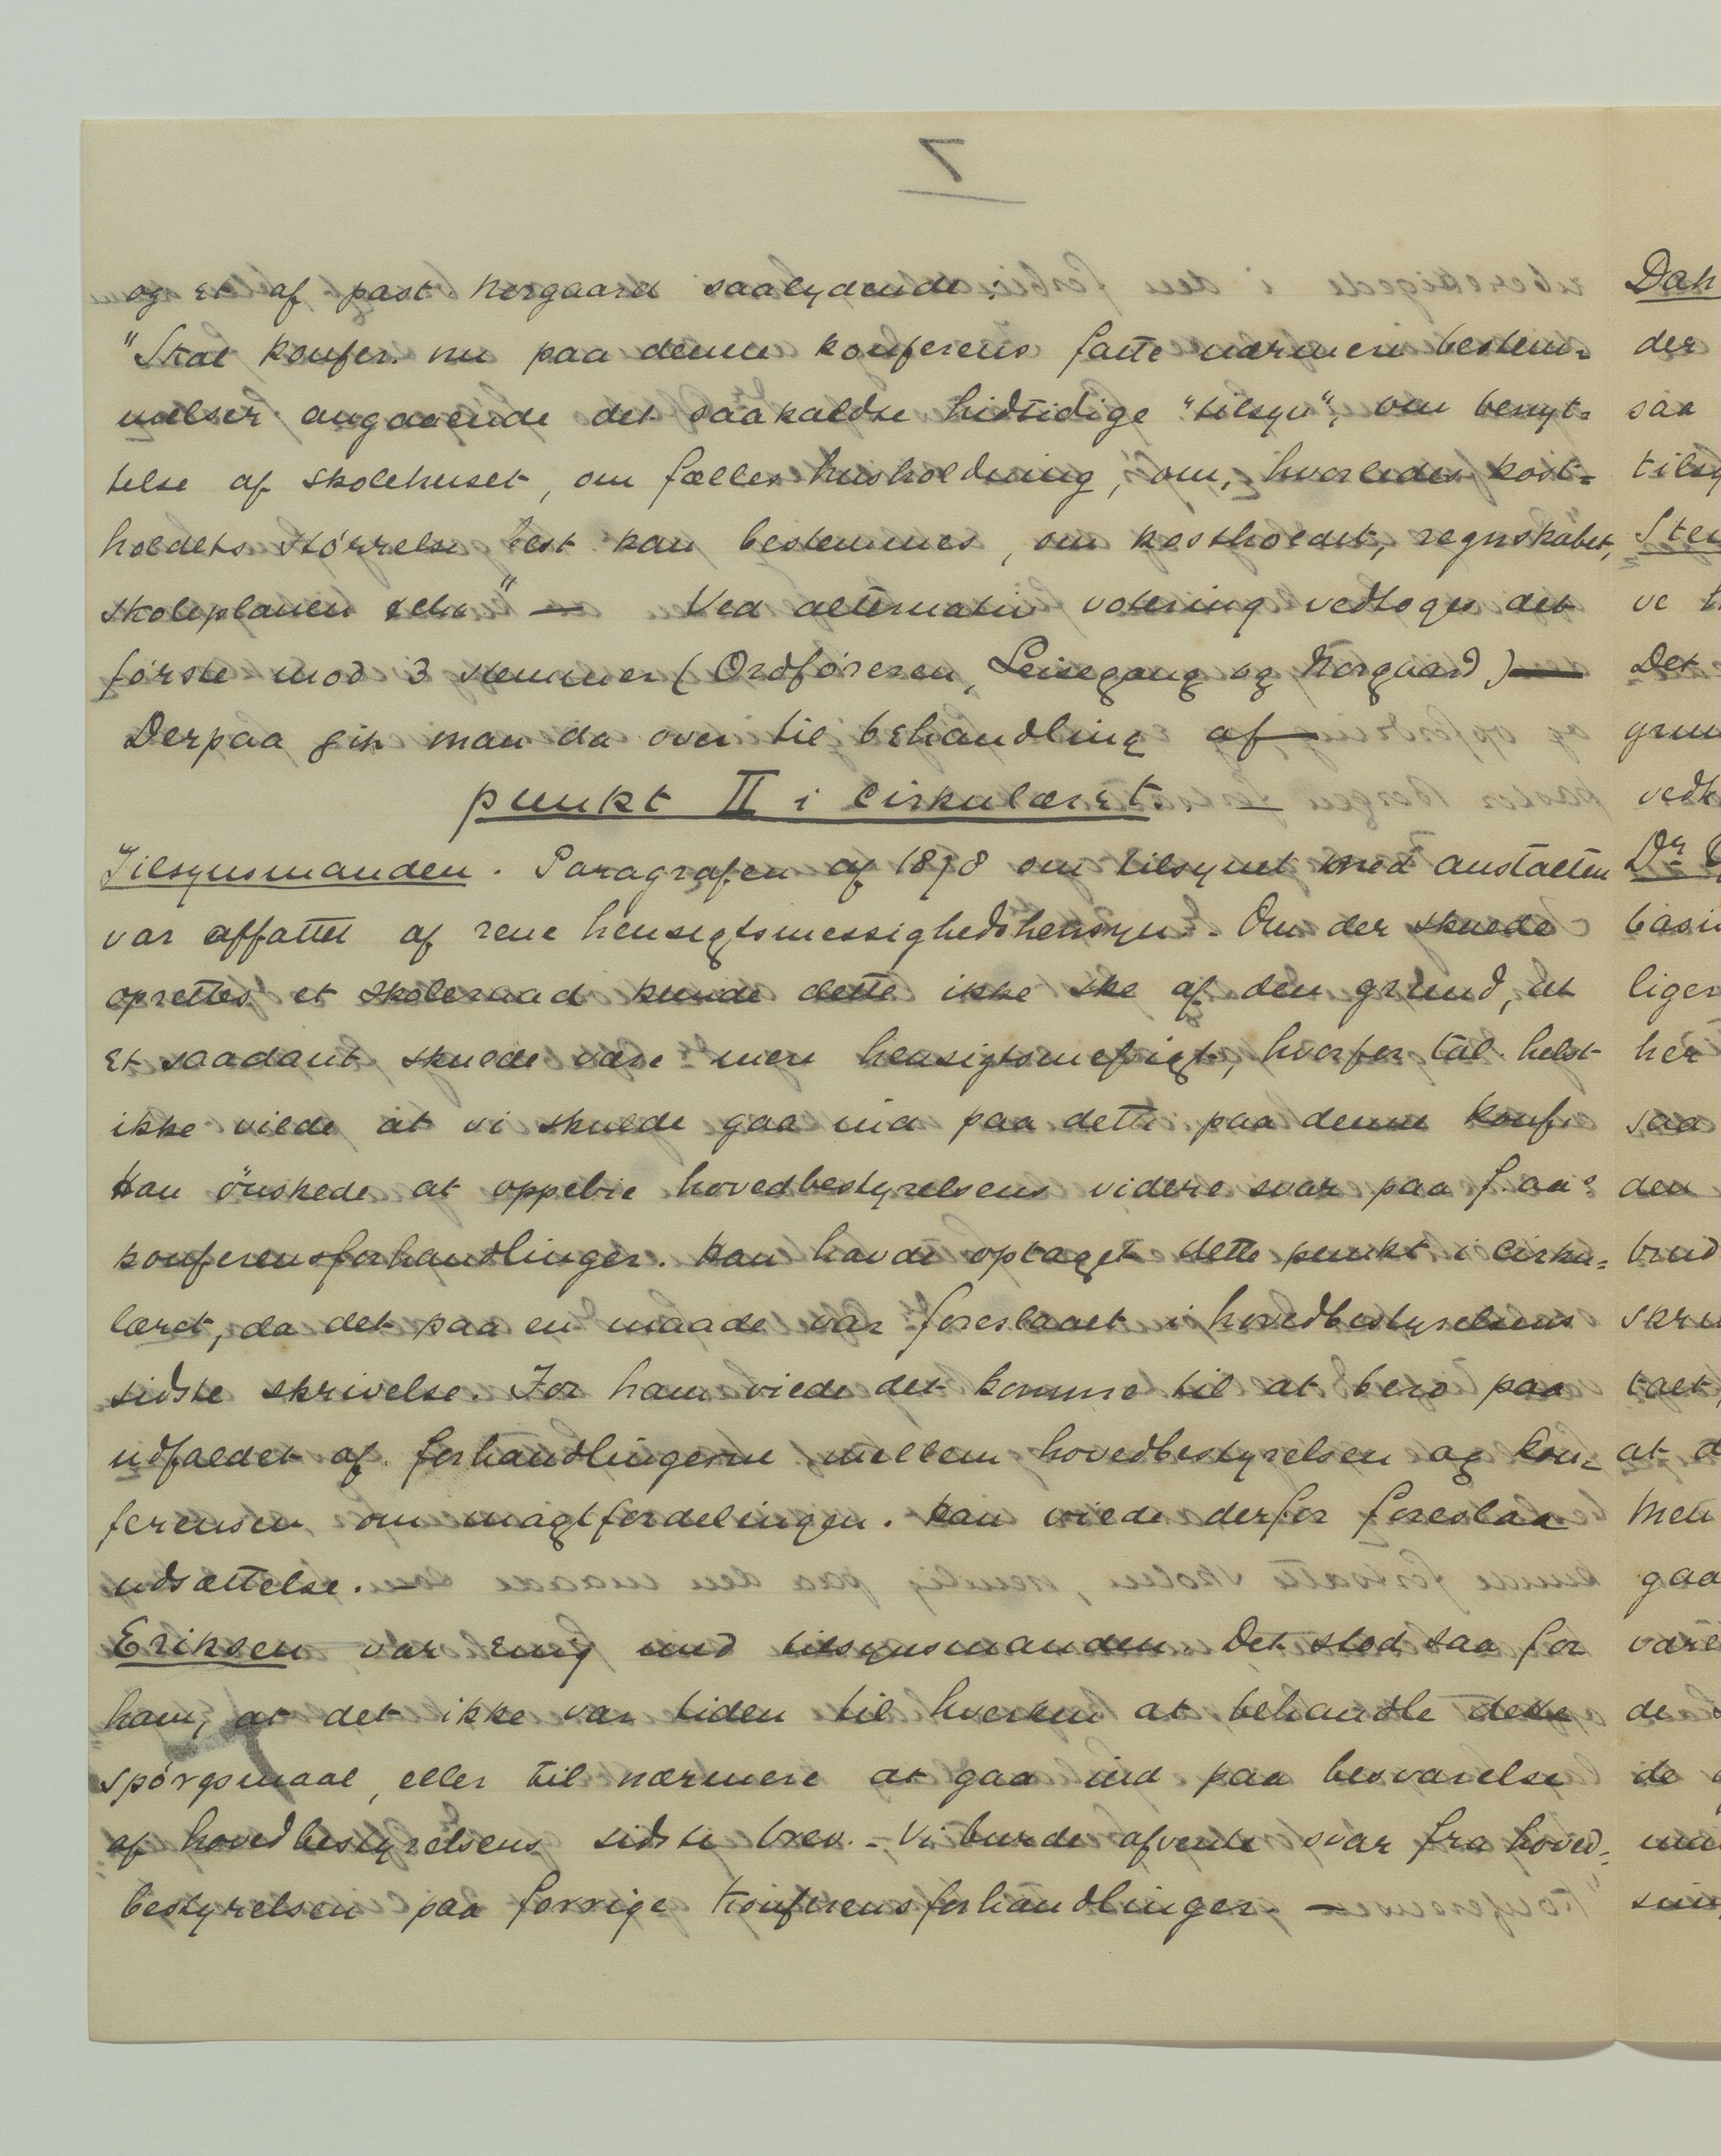 7
og et af past. Norgaard saalydende:
"Skal konfer. nu paa denne konferens fatte nærmere bestem=
melser angaaende det saakaldte hidtidige "tilsyn", om benyt=
telse af skolehuset, om fælles husholdning, om, hvorledes kost=
holdets størrelse best kan bestemmes, om kostholdet, regnskabet,
skoleplanen etc." — Ved alternativ votering vedtoges det
første mod 3 stemmer (Ordføreren, Leisegang og Norgaard) —
Derpaa gik man da over til behandling af —
punkt II i cirkulæret. —
Tilsynsmanden. Paragrafen af 1878 om tilsynet med anstalten
var affattet af rene hensigtsmessighedshensyn. Om der skulde
oprettes et skoleraad kunde dette ikke ske af den grund, at
et saadant skulde være mere hensigtsmessigt, hvorfor tal. helst
ikke vilde at vi skulde gaa ind paa dette paa denne konf.
Han ønskede at oppebie hovedbestyrelsens videre svar paa f. aars
konferensforhandlinger. Han havde optaget dette punkt i cirku=
læret, da det paa en maade var foreslaaet i hovedbestyrelsens
sidste skrivelse. For ham vilde det komme til at bero paa
udfaldet af forhandlingerne mellem hovedbestyrelsen og kon=
ferensen om magtfordelingen. Han vilde derfor foreslaa
udsættelse. —
Eriksen var enig med tilsynsmanden. Det stod saa for
ham, at det ikke var tiden til hverken at behandle dette
spørgsmaal, eller til nærmere at gaa ind paa besvarelse
af hovedbestyrelsens sidste brev. – Vi burde afvente svar fra hoved=
bestyrelsen paa forrige konferensforhandlinger. —
Dah
der
saa
tilsy
Sten
ve
Det
grun
vedk
Dr
basi
liger
her
saa
den
brud
skru
talt,
at d
Men
gaa
være
de
de